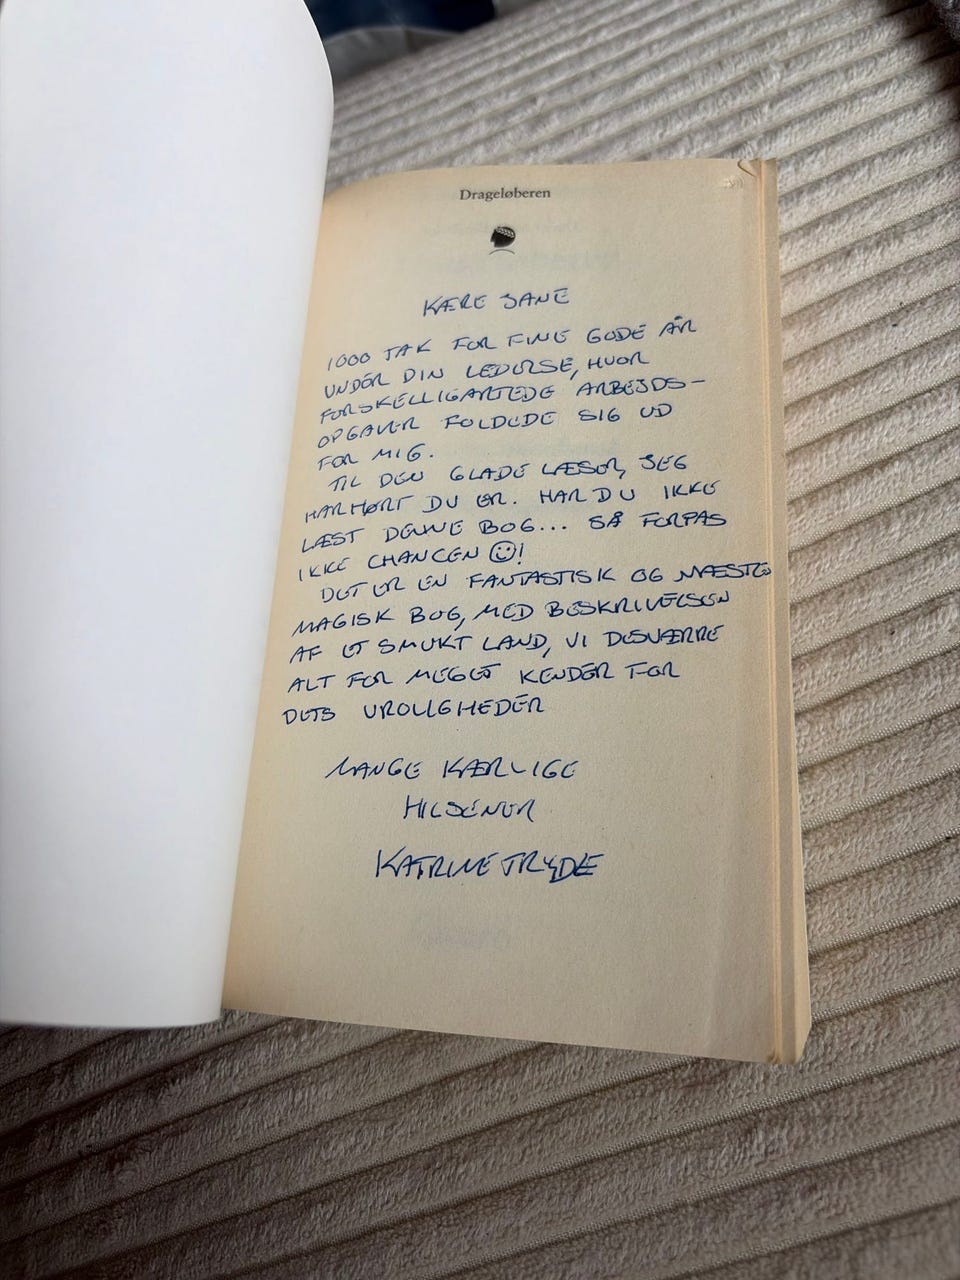 Drageløberen
KÆRE JANE
1000 TAK FOR FINE GODE ÅR
UNDER DIN LEDELSE, HVOR
FORSKELLIGARTEDE ARBEJDS-
OPGAVER FOLDEDE SIG UD
FOR MIG.
TIL DEN GLADE LÆSER, JEG
HAR HØRT DU ER. HAR DU IKKE
LÆST DENNE BOG... SÅ FORPAS
IKKE CHANCEN ☺!
DET ER EN FANTASTISK OG NÆSTEN
MAGISK BOG, MED BESKRIVELSEN
AF ET SMUKT LAND, VI DESVÆRRE
ALT FOR MEGET KENDER FOR
DETS UROLIGHEDER
MANGE KÆRLIGE
HILSENER
KATRINE TRYDE